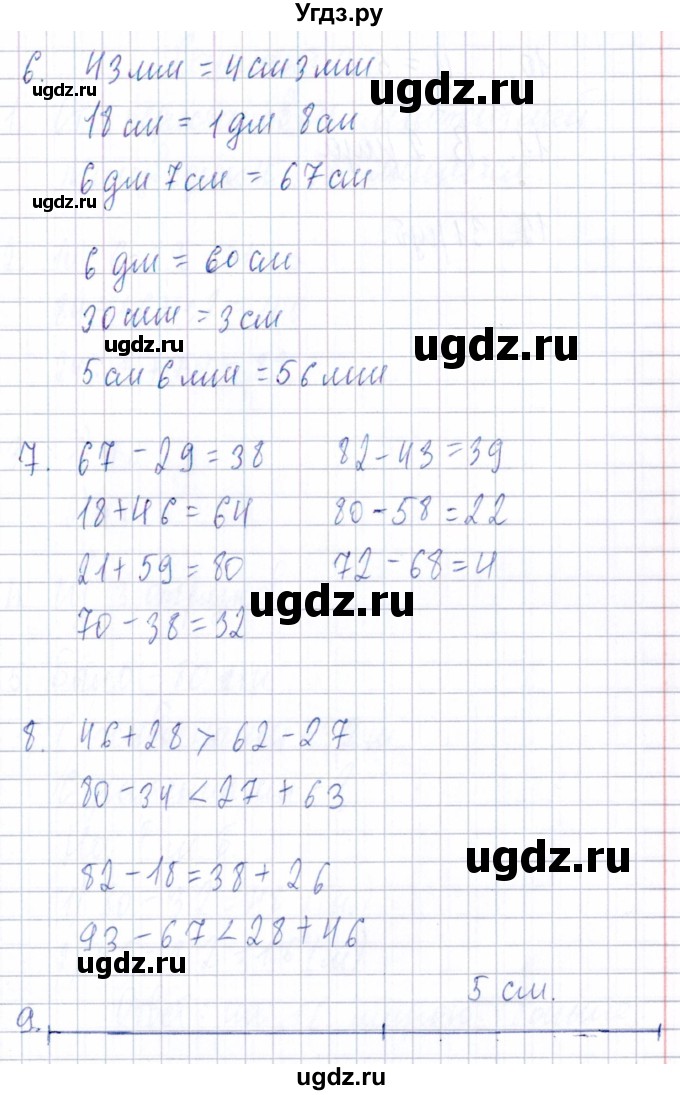 Угдз.ру
6. 43 мм = 4 см 3 мм
ugdz.ru
18 см = 1 дм 8 см
ugdz.ru
6 дм 7 см = 67 см
ugdz.ru
6 дм = 60 см
30 мм = 3 см
ugdz.ru
ugdz.ru
5 см 6 мм = 56 мм
7. 67 - 29 = 38 82 - 43 = 39
18 + 46 = 64 80 - 58 = 22
21 + 59 = 80 72 - 68 = 4
ugdz.ru
70 - 38 = 32
8. 46 + 28 > 62 - 27
80 - 34 < 27 + 63
ugdz.ru
82 - 18 = 38 + 26
93 - 67 < 28 + 46
ugdz.ru
5 см.
9.
ugdz.ru